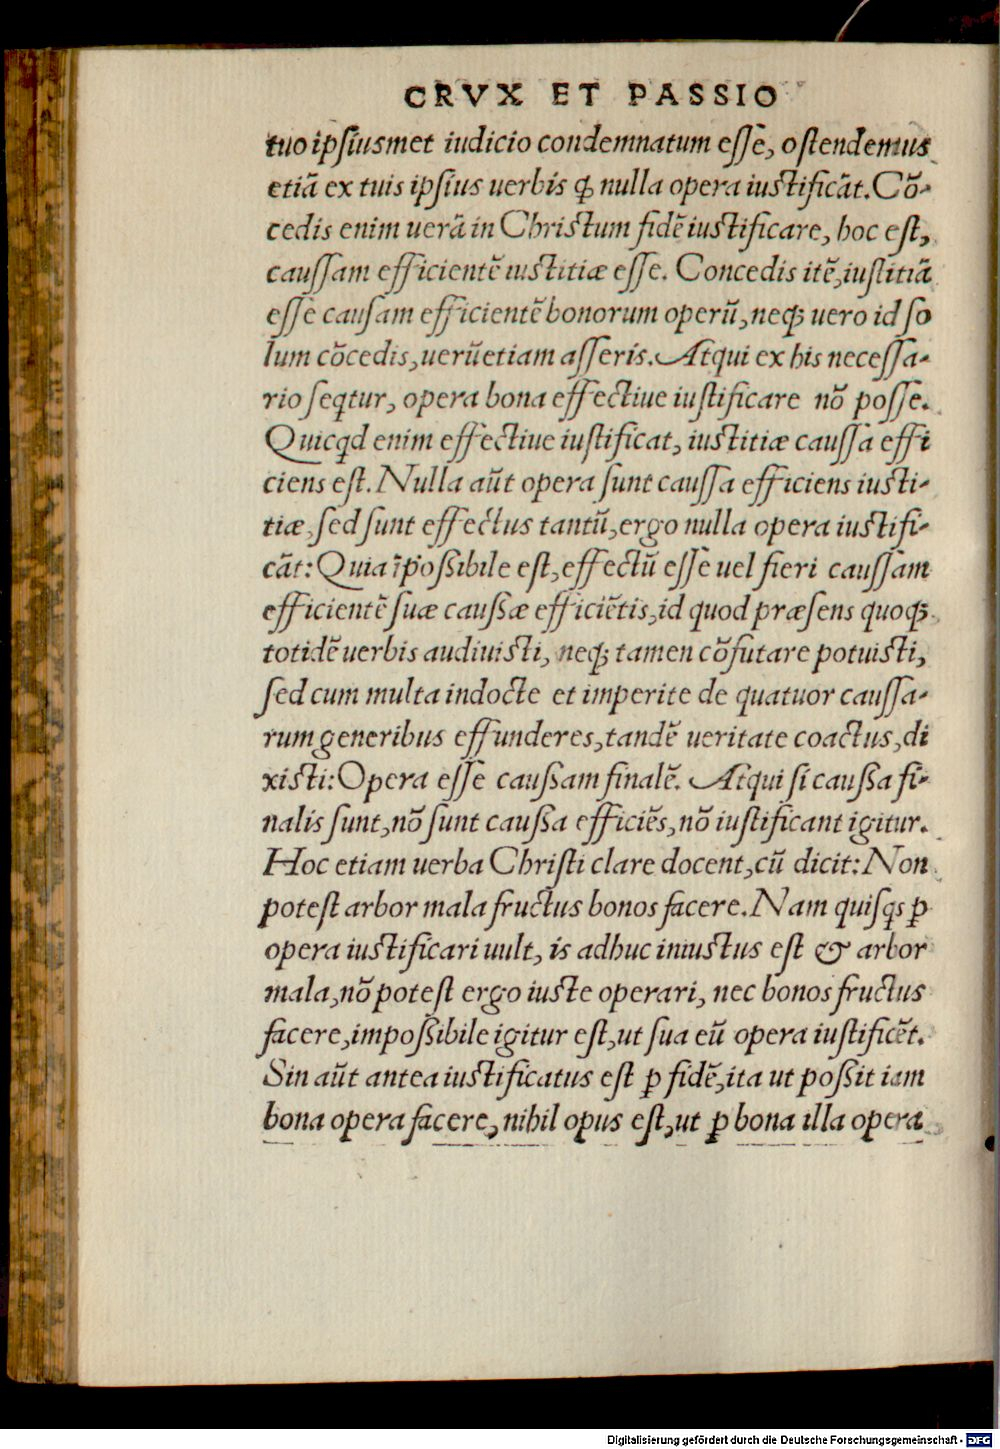 CRVX ET PASSIO
tuo ipſiusmet iudicio condemnatum eſſe, oſtendemus
etiã ex tuis ipſius uerbis ꝙ nulla opera iuſtificãt. Cõ-
cedis enim uerã in Chriſtum fidẽ iuſtificare, hoc eſt,
cauſſam efficientẽ iuſtitiæ eſſe. Concedis itẽ, iuſtitiã
eſſe cauſam efficientẽ bonorum operũ, neqꝫ uero id ſo
lum cõcedis, uerũetiam aſſeris. Atqui ex his neceſſa-
rio ſeq̃tur, opera bona effectiue iuſtificare nõ poſſe.
Quicq̃d enim effectiue iuſtificat, iuſtitiæ cauſſa effi
ciens eſt. Nulla aũt opera ſunt cauſſa efficiens iuſti-
tiæ, ſed ſunt effectus tantũ, ergo nulla opera iuſtifi-
cãt: Quia ĩpoßibile eſt, effectũ eſſe uel fieri cauſſam
efficientẽ ſuæ caußæ efficiẽtis, id quod præſens quoqꝫ
totidẽ uerbis audiuiſti, neqꝫ tamen cõfutare potuiſti,
ſed cum multa indocte et imperite de quatuor cauſſa-
rum generibus effunderes, tandẽ ueritate coactus, di
xiſti: Opera eſſe caußam finalẽ. Atqui ſi caußa fi-
nalis ſunt, nõ ſunt caußa efficiẽs, nõ iuſtificant igitur.
Hoc etiam uerba Chriſti clare docent, cũ dicit: Non
poteſt arbor mala fructus bonos facere. Nam quiſq̃s ꝑ
opera iuſtificari uult, is adhuc iniuſtus eſt & arbor
mala, nõ poteſt ergo iuſte operari, nec bonos fructus
facere, impoßibile igitur eſt, ut ſua eũ opera iuſtificẽt.
Sin aũt antea iuſtificatus eſt ꝑ fidẽ, ita ut poßit iam
bona opera facere, nihil opus eſt, ut ꝑ bona illa opera
Digitalisierung gefördert durch die Deutsche Forschungsgemeinschaft - DFG